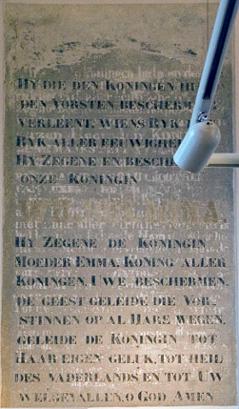 HY DIE DEN KONINGEN
DEN VORSTEN BESCHERM
VERLEENT, WIENS RYK
RYK ALLER EEUWIGHE
HY ZEGENE EN BESCHE
ONZE KONINGIN
HY ZEGENE DE KONINGIN
MOEDER EMMA, KONING ALLER
KONINGEN, UWE BESCHERMEN
DE GEEST GELEIDE DIE VOR-
STINNEN OP AL HARE WEGEN,
GELEIDE DE KONINGIN TOT
HAAR EIGEN GELUK, TOT HEIL
DES VADERLANDS EN TOT UW
WELGEVALLEN, O GOD AMEN